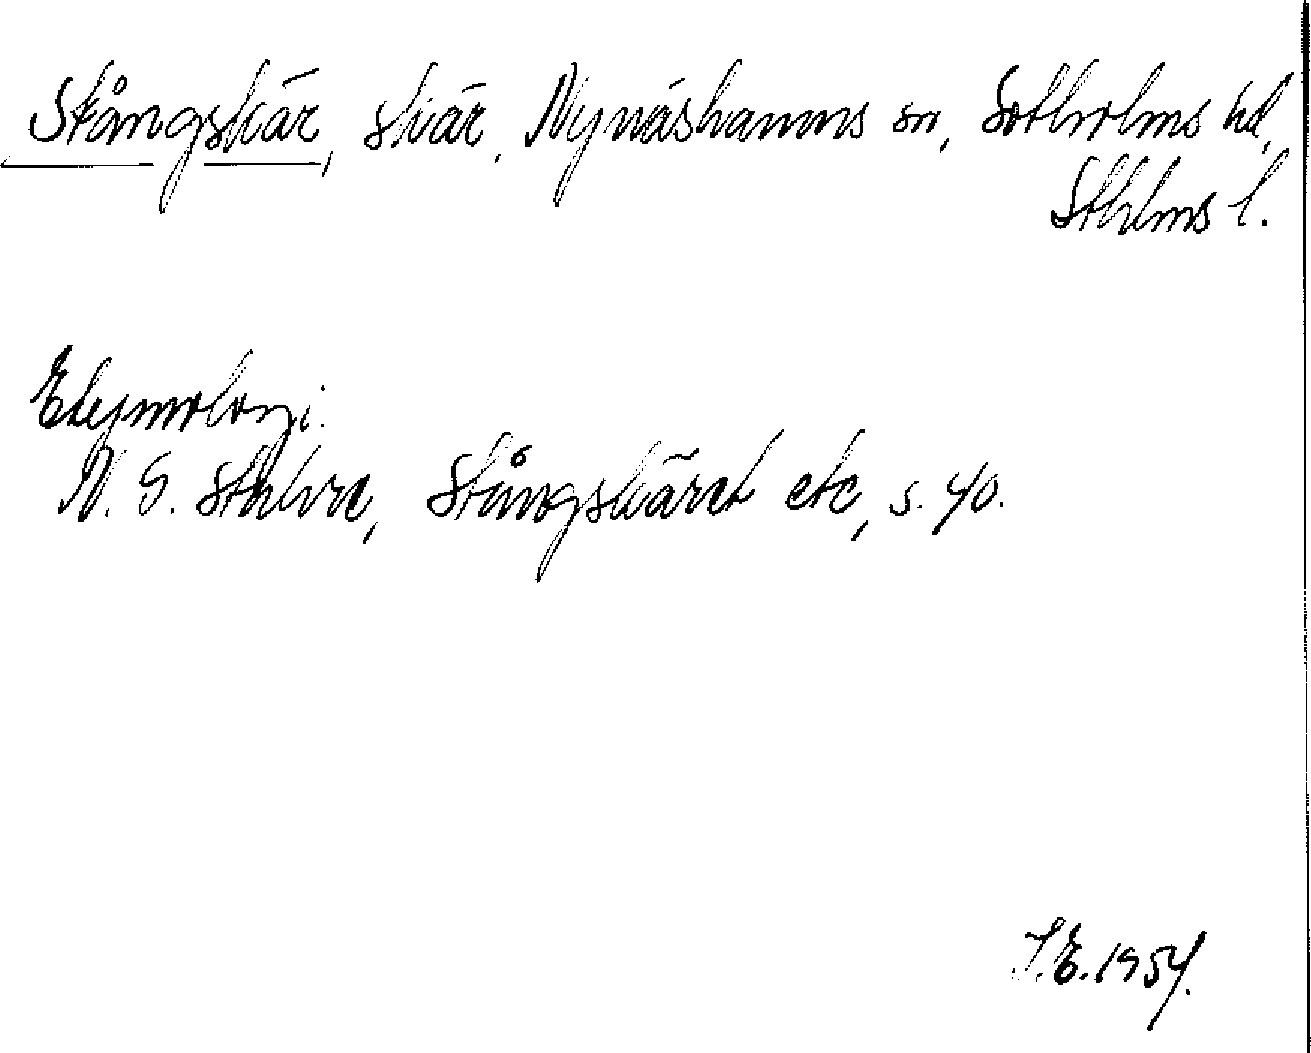 Stångskär, skär, Nynäshamns sn, Sotholms hd,
Sthlms l.
Etymologi.
N. G. Stahre, Stångskäret etc, s. 40.
I.E. 1954.